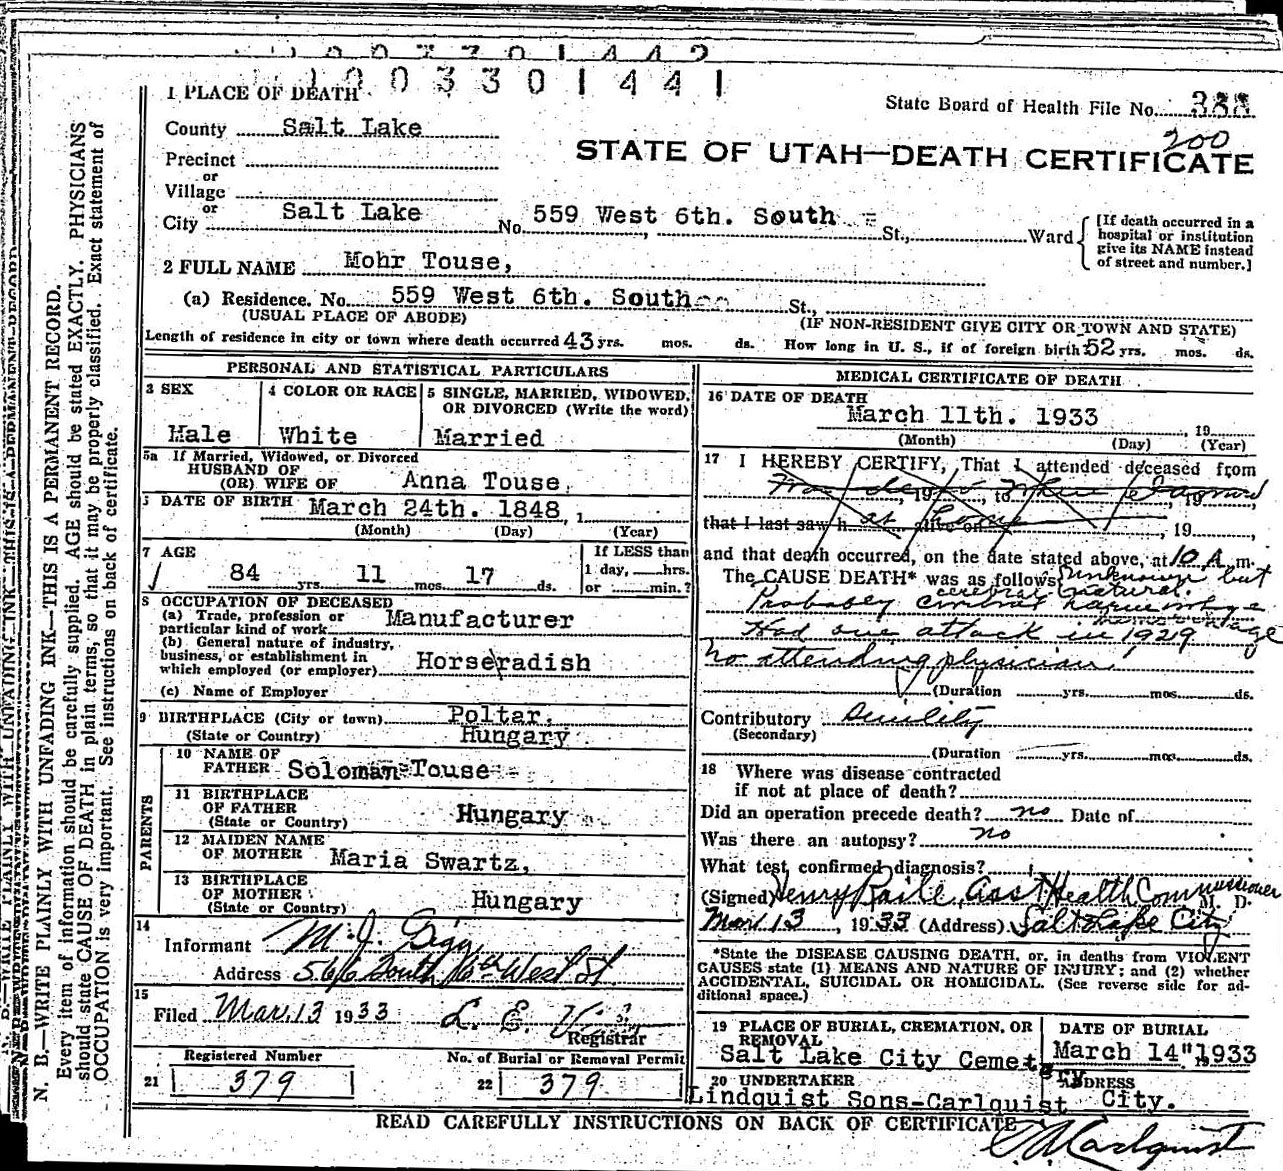 1003301442
1003301441
1 PLACE OF DEATH
State Board of Health File No. 388
200
County Salt Lake
STATE OF UTAH—DEATH CERTIFICATE
Precinct
or
Village
or
City Salt Lake No. 559 West 6th. South St., Ward
[If death occurred in a hospital or institution give its NAME instead of street and number.]
2 FULL NAME Mohr Touse,
(a) Residence. No. 559 West 6th. South St.,
(USUAL PLACE OF ABODE) (IF NON-RESIDENT GIVE CITY OR TOWN AND STATE)
Length of residence in city or town where death occurred 43 yrs. mos. ds. How long in U. S., if of foreign birth 52 yrs. mos. ds.
PERSONAL AND STATISTICAL PARTICULARS
3 SEX
Male
4 COLOR OR RACE
White
5 SINGLE, MARRIED, WIDOWED, OR DIVORCED (Write the word)
Married
5a If Married, Widowed, or Divorced
HUSBAND OF
(OR) WIFE OF Anna Touse,
6 DATE OF BIRTH March 24th. 1848, 1
(Month) (Day) (Year)
7 AGE
84 yrs. 11 mos. 17 ds.
If LESS than
1 day, hrs.
or min.?
8 OCCUPATION OF DECEASED
(a) Trade, profession or
particular kind of work Manufacturer
(b) General nature of industry,
business, or establishment in
which employed (or employer) Horseradish
(c) Name of Employer
9 BIRTHPLACE (City or town) Poltar,
(State or Country) Hungary
PARENTS
10 NAME OF
FATHER Soloman Touse
11 BIRTHPLACE
OF FATHER
(State or Country) Hungary
12 MAIDEN NAME
OF MOTHER Maria Swartz,
13 BIRTHPLACE
OF MOTHER
(State or Country) Hungary
14
Informant M. J.
Address 566 South 16th West St.
15
Filed Mar. 13 1933 L. E.
Registrar
Registered Number
21 379
No. of Burial or Removal Permit
22 379
MEDICAL CERTIFICATE OF DEATH
16 DATE OF DEATH
March 11th. 1933, 19
(Month) (Day) (Year)
17 I HEREBY CERTIFY, That I attended deceased from
19 , to , 19 ,
that I last saw h at alive on home , 19 ,
and that death occurred, on the date stated above, at 10 A. m.
The CAUSE DEATH* was as follows: unknown but
cerebral natural.
Probably cerebral
hemorrhage
Had one attack in 1929
No attending physician
(Duration yrs. mos. ds.
Contributory Senility
(Secondary)
(Duration yrs. mos. ds.
18 Where was disease contracted
if not at place of death?
Did an operation precede death? no Date of
Was there an autopsy? no
What test confirmed diagnosis?
(Signed) Henry Raile, Asst Health Commissioner M. D.
Mar 13, 1933 (Address) Salt Lake City
*State the DISEASE CAUSING DEATH, or, in deaths from VIOLENT
CAUSES state (1) MEANS AND NATURE OF INJURY; and (2) whether
ACCIDENTAL, SUICIDAL OR HOMICIDAL. (See reverse side for ad-
ditional space.)
19 PLACE OF BURIAL, CREMATION, OR
REMOVAL
Salt Lake City Cemetery
DATE OF BURIAL
March 14" 1933
20 UNDERTAKER
Lindquist Sons-Carlquist
ADDRESS
City.
READ CAREFULLY INSTRUCTIONS ON BACK OF CERTIFICATE
Carlquist
N. B.—WRITE PLAINLY WITH UNFADING INK—THIS IS A PERMANENT RECORD.
Every item of information should be carefully supplied. AGE should be stated EXACTLY. PHYSICIANS
should state CAUSE OF DEATH in plain terms, so that it may be properly classified. Exact statement of
OCCUPATION is very important. See instructions on back of certificate.